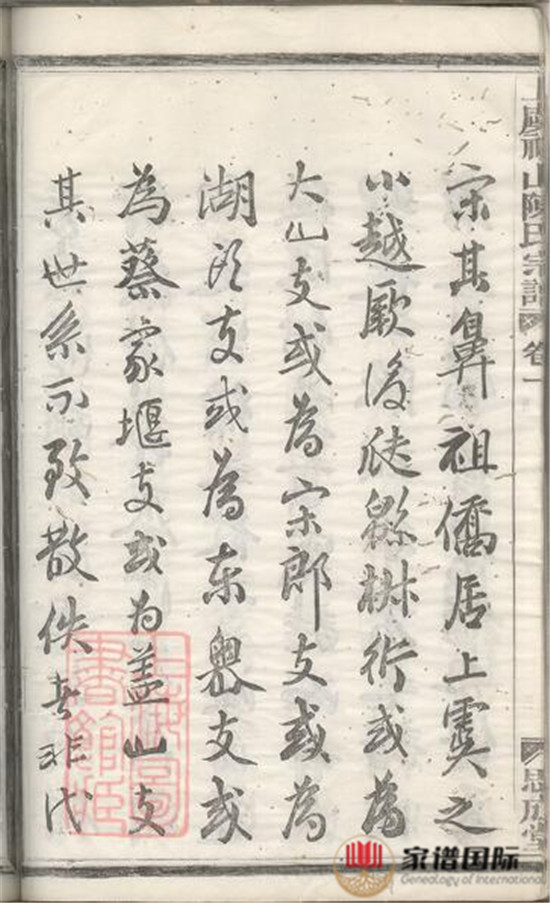 山陳氏宗譜 卷一
宋其鼻祖僑居上虞之
小越厥後瓞綿椒衍或為
大山支或為宋郎支或為
湖頭支或為東嶴支或
為蔡家堰支或为盖山支
其世系不致散佚者非代
家谱国际
Genealogy of International